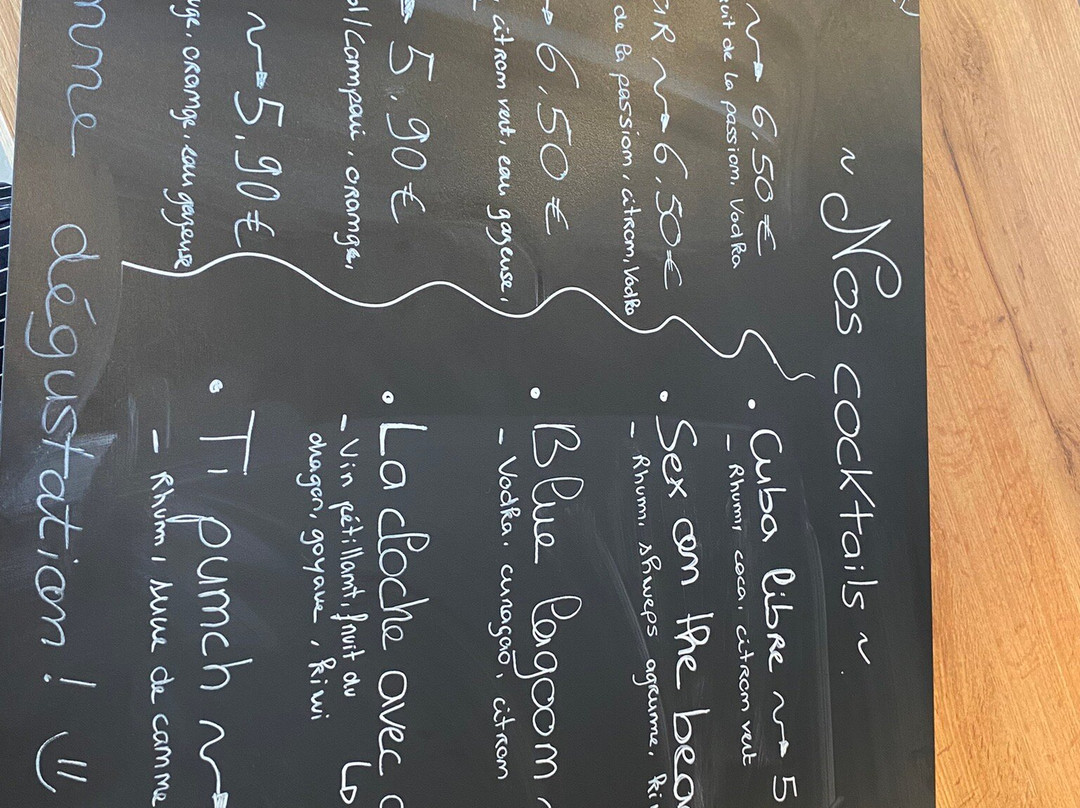 ~ Nos cocktails ~
~→ 6,50 €
uit de la passion, Vodka
OR ~→ 6,50 €
de la passion, citron, Vodka
→ 6,50 €
citron vert, eau gazeuse,
→ 5,90 €
ol/Campari, orange,
~→ 5,90 €
uge, orange, eau gazeuse
• Cuba libre ~→ 5
- Rhum, coca, citron vert
• Sex on the beac
- Rhum, shweps agrume, ki
• Blue lagoon ~
- Vodka, curaçao, citron
• La cloche avec
- Vin pétillant, fruit du
dragon, goyave, kiwi
• Ti punch ~→
- Rhum, sucre de canne
nne dégustation !